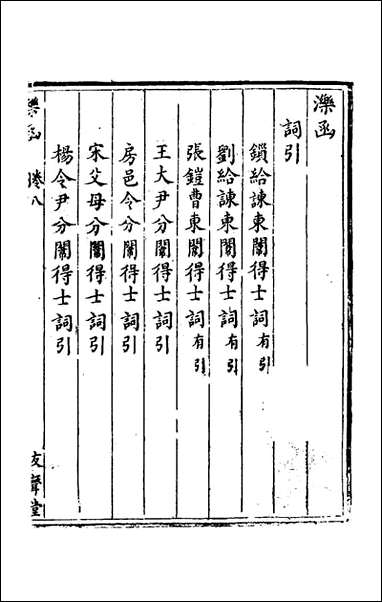 濼函
詞引
鎖給諫東闈得士詞有引
劉給諫東闈得士詞有引
張鎧曹東闈得士詞有引
王大尹分闈得士詞引
房邑令分闈得士詞引
宋父母分闈得士詞引
楊令尹分闈得士詞引
濼函 卷八 友聲堂